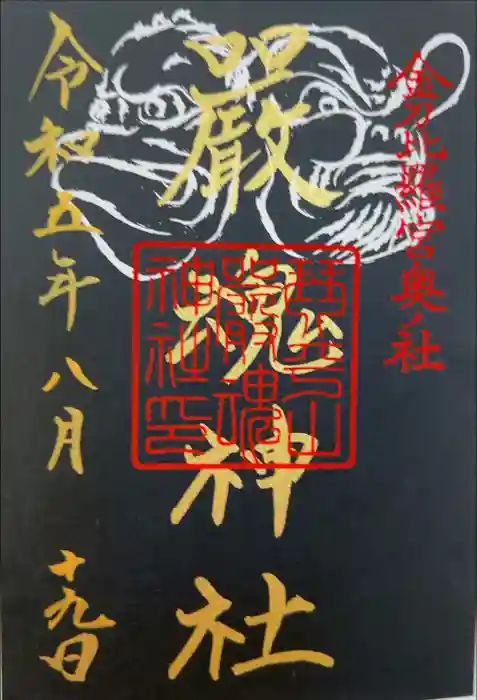 金刀比羅宮奥ノ社
嚴魂神社
琴平山
嚴魂
神社印
令和五年八月十九日